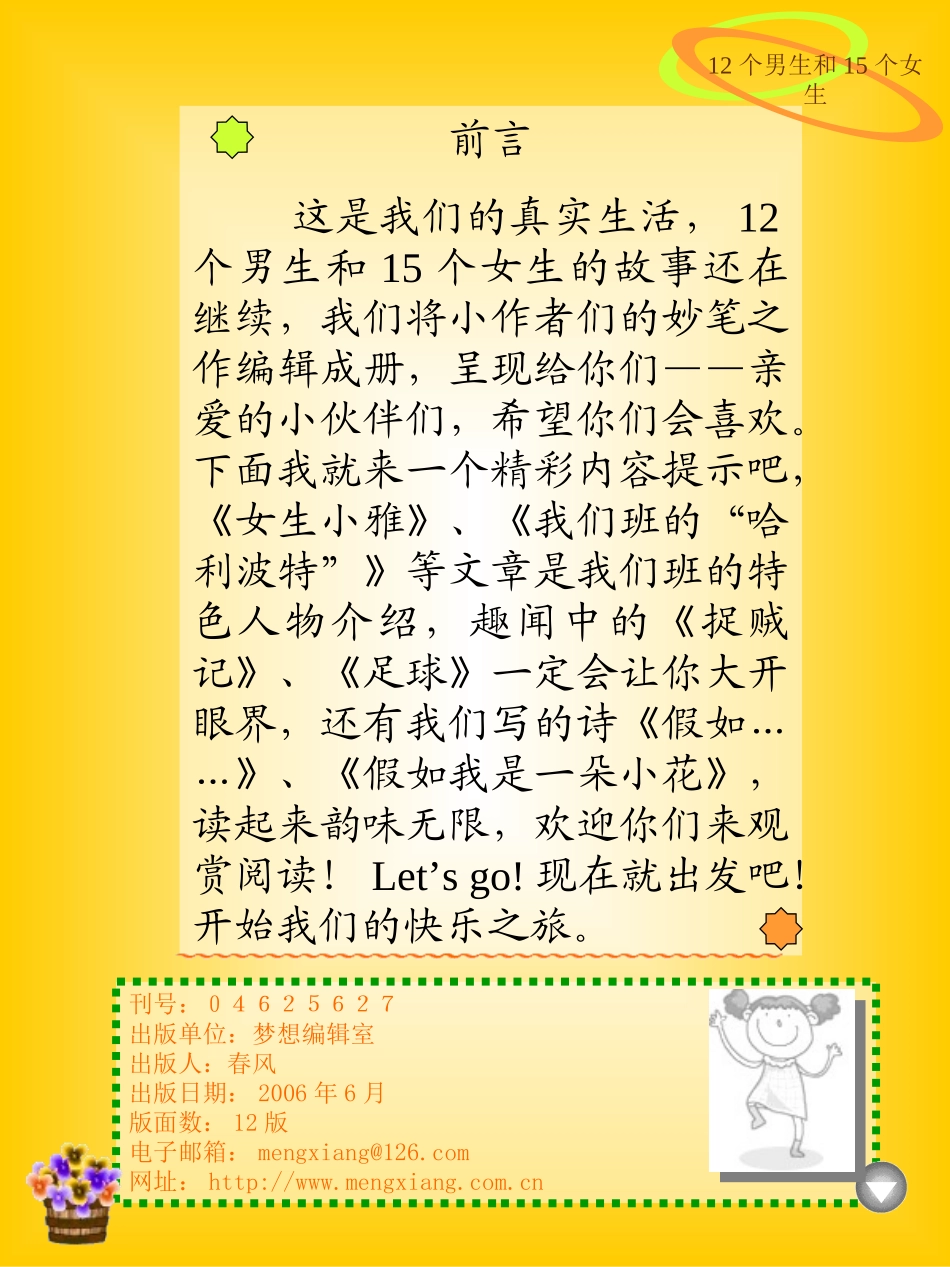 12 个男生和 15 个女
生
前言
这是我们的真实生活， 12
个男生和 15 个女生的故事还在
继续，我们将小作者们的妙笔之
作编辑成册，呈现给你们——亲
爱的小伙伴们，希望你们会喜欢。
下面我就来一个精彩内容提示吧，
《女生小雅》、《我们班的“哈
利波特”》等文章是我们班的特
色人物介绍，趣闻中的《捉贼
记》、《足球》一定会让你大开
眼界，还有我们写的诗《假如…
…》、《假如我是一朵小花》，
读起来韵味无限，欢迎你们来观
赏阅读！ Let’s go! 现在就出发吧！
开始我们的快乐之旅。
刊号：０４６２５６２７
出版单位：梦想编辑室
出版人：春风
出版日期： 2006 年 6 月
版面数： 12 版
电子邮箱： mengxiang@126.com
网址： http://www.mengxiang.com.cn